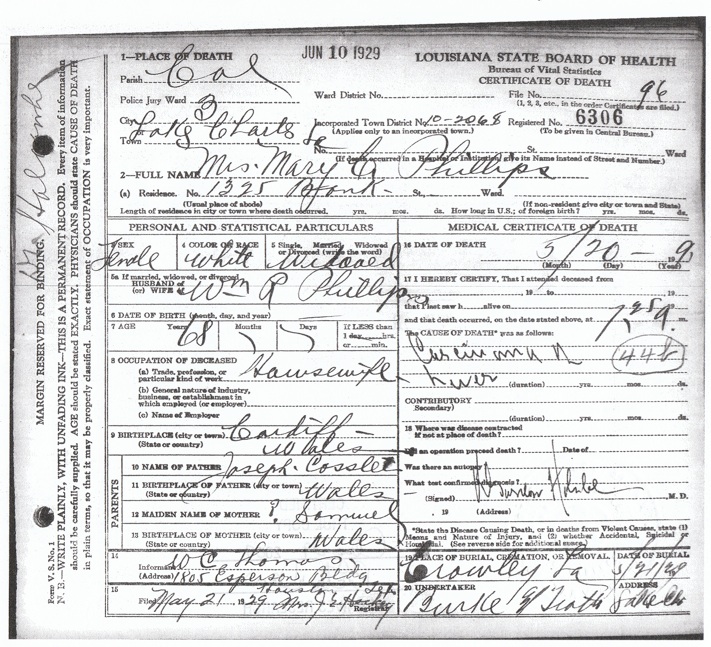 JUN 10 1929
LOUISIANA STATE BOARD OF HEALTH
Bureau of Vital Statistics
CERTIFICATE OF DEATH
1—PLACE OF DEATH
Parish Cal
Police Jury Ward 3
Ward District No.
File No. 96
(1, 2, 3, etc., in the order Certificates are filed.)
City
Town Lake Charles La
Incorporated Town District No. 10-2068 Registered No. 6306
(Applies only to an incorporated town.) (To be given in Central Bureau.)
No. St., Ward
(If death occurred in a Hospital or Institution, give its Name instead of Street and Number.)
2—FULL NAME Mrs. Mary C. Phillips
(a) Residence. No. 1325 St., Ward.
(Usual place of abode) (If non-resident give city or town and State)
Length of residence in city or town where death occurred. yrs. mos. ds. How long in U.S.; of foreign birth? yrs. mos. ds.
PERSONAL AND STATISTICAL PARTICULARS
3 SEX Female
4 COLOR OR RACE White
5 Single, Married, Widowed or Divorced (write the word) Widowed
5a If married, widowed, or divorced
HUSBAND of
(or) WIFE of Wm R Phillips
6 DATE OF BIRTH (month, day, and year)
7 AGE Years 68 Months Days
If LESS than
1 day, hrs.
or min.
8 OCCUPATION OF DECEASED
(a) Trade, profession, or
particular kind of work Housewife
(b) General nature of industry,
business, or establishment in
which employed (or employer)
(c) Name of Employer
9 BIRTHPLACE (city or town) Cardiff
(State or country) Wales
PARENTS
10 NAME OF FATHER Joseph Cosslet
11 BIRTHPLACE OF FATHER (city or town)
(State or country) Wales
12 MAIDEN NAME OF MOTHER ? Samuel
13 BIRTHPLACE OF MOTHER (city or town)
(State or country) Wales
14
Informant W C Thomas
(Address) 1805 Esperson Bldg
Houston Tex
15
Filed May 21 1929 Mrs. Registrar
MEDICAL CERTIFICATE OF DEATH
16 DATE OF DEATH 5/20 — 1929
(Month) (Day) (Year)
17 I HEREBY CERTIFY, That I attended deceased from
19 to 19
that I last saw h alive on
and that death occurred, on the date stated above, at 7.25 a. m.
The CAUSE OF DEATH* was as follows:
Carcinoma of
Liver
44b
(duration) yrs. mos. ds.
CONTRIBUTORY
(Secondary)
(duration) yrs. mos. ds.
18 Where was disease contracted
if not at place of death?
Did an operation precede death? Date of
Was there an autopsy
What test confirmed diagnosis?
(Signed) M.D.
, 19 (Address)
*State the Disease Causing Death, or in deaths from Violent Causes, state (1)
Means and Nature of Injury, and (2) whether Accidental, Suicidal or
Homicidal. (See reverse side for additional space.)
19 PLACE OF BURIAL, CREMATION, OR REMOVAL DATE OF BURIAL
Crowley La
20 UNDERTAKER ADDRESS
Burke & Lake Chs
MARGIN RESERVED FOR BINDING.
Form V. S. No. 1
N. B.—WRITE PLAINLY, WITH UNFADING INK—THIS IS A PERMANENT RECORD. Every item of information
should be carefully supplied. AGE should be stated EXACTLY. PHYSICIANS should state CAUSE OF DEATH
in plain terms, so that it may be properly classified. Exact statement of OCCUPATION is very important.